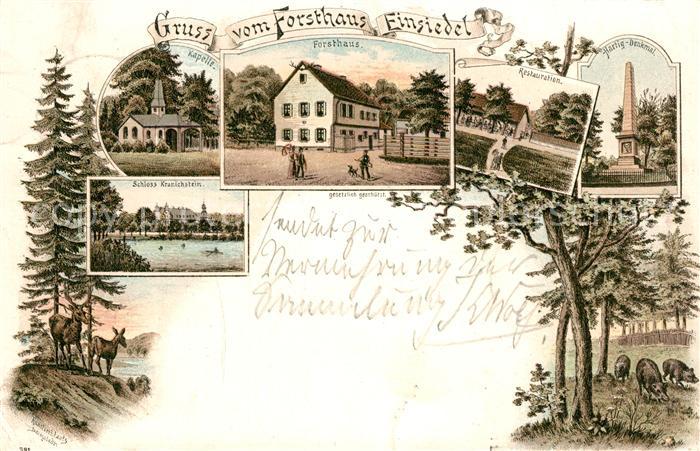 Gruss vom Forsthaus Einsiedel
Kapelle.
Forsthaus.
Restauration.
Hartig-Denkmal.
Schloss Kranichstein.
gesetzlich geschützt.
sendet zur
Vermehrung der
Sammlung
381